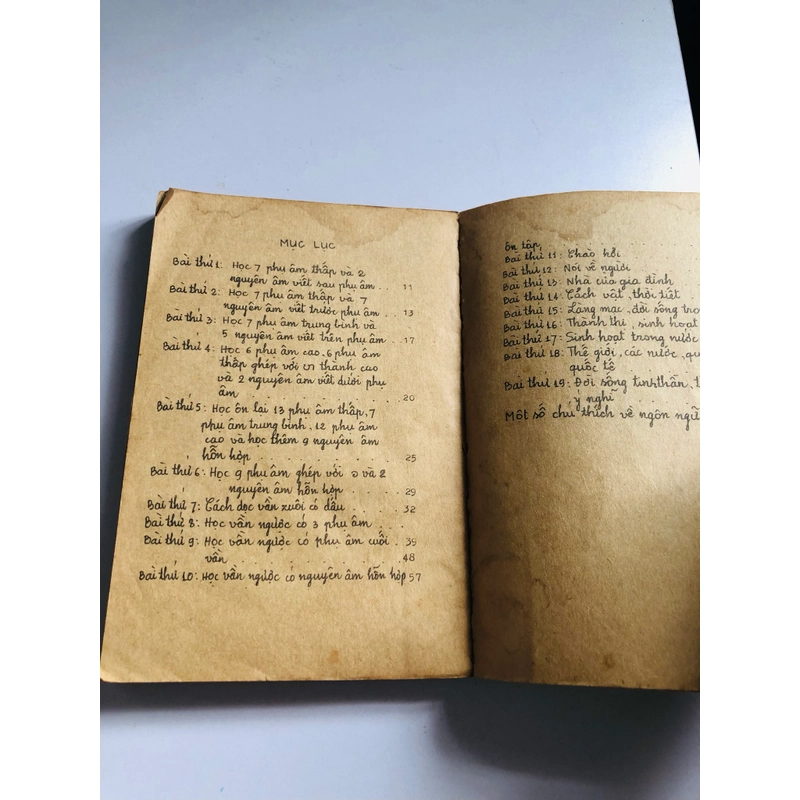 MỤC LỤC
Bài thứ 1: Học 7 phụ âm thấp và 2
nguyên âm viết sau phụ âm . . 11
Bài thứ 2: Học 7 phụ âm thấp và 7
nguyên âm viết trước phụ âm . 13
Bài thứ 3: Học 7 phụ âm trung bình và
5 nguyên âm viết trên phụ âm . 17
Bài thứ 4: Học 6 phụ âm cao, 6 phụ âm
thấp ghép với ຫ thành cao
và 2 nguyên âm viết dưới phụ
âm . . . 20
Bài thứ 5: Học ôn lại 13 phụ âm thấp, 7
phụ âm trung bình, 12 phụ âm
cao và học thêm 9 nguyên âm
hỗn hợp . . . 25
Bài thứ 6: Học 9 phụ âm ghép với ວ và 2
nguyên âm hỗn hợp . . . 29
Bài thứ 7: Cách đọc vần xuôi có dấu . . . 32
Bài thứ 8: Học vần ngược có 3 phụ âm . . .
Bài thứ 9: Học vần ngược có phụ âm cuối . 39
vần . . . 48
Bài thứ 10: Học vần ngược có nguyên âm hỗn hợp 57
Ôn tập
Bài thứ 11: Chào hỏi
Bài thứ 12: Nói về người
Bài thứ 13: Nhà cửa gia đình
Bài thứ 14: Cách vật, thời tiết
Bài thứ 15: Làng mạc, đời sống
Bài thứ 16: Thành thị, sinh hoạt
Bài thứ 17: Sinh hoạt trong nước
Bài thứ 18: Thế giới, các nước,
quốc tế
Bài thứ 19: Đời sống tinh thần,
ý nghĩ
Một số chú thích về ngôn ngữ